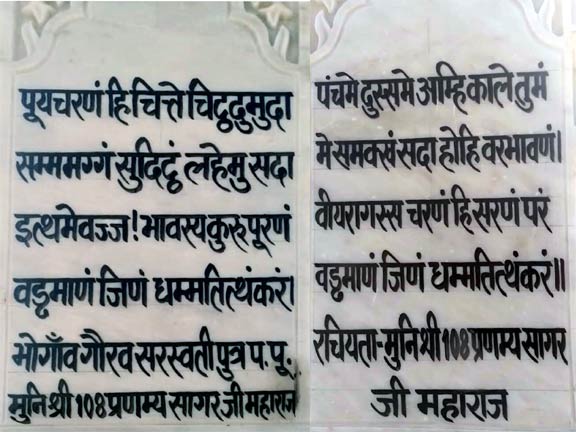 पूयचरणं हि चित्ते चिट्ठदु मुदा
सम्ममग्गं सुदिट्ठं लहेमु सदा
इत्थमेवज्ज! भावस्य कुरु पूरणं
वड्ढमाणं जिणं धम्मतित्थंकरं।
भोगाँव गौरव सरस्वती पुत्र प. पू.
मुनि श्री 108 प्रणम्य सागर जी महाराज
पंचमे दुस्समे अम्हि काले तुमं
मे समक्खं सदा होहि वरभावणं।
वीयरागस्स चरणं हि सरणं परं
वड्ढमाणं जिणं धम्मतित्थंकरं॥
रचियता-मुनि श्री 108 प्रणम्य सागर
जी महाराज